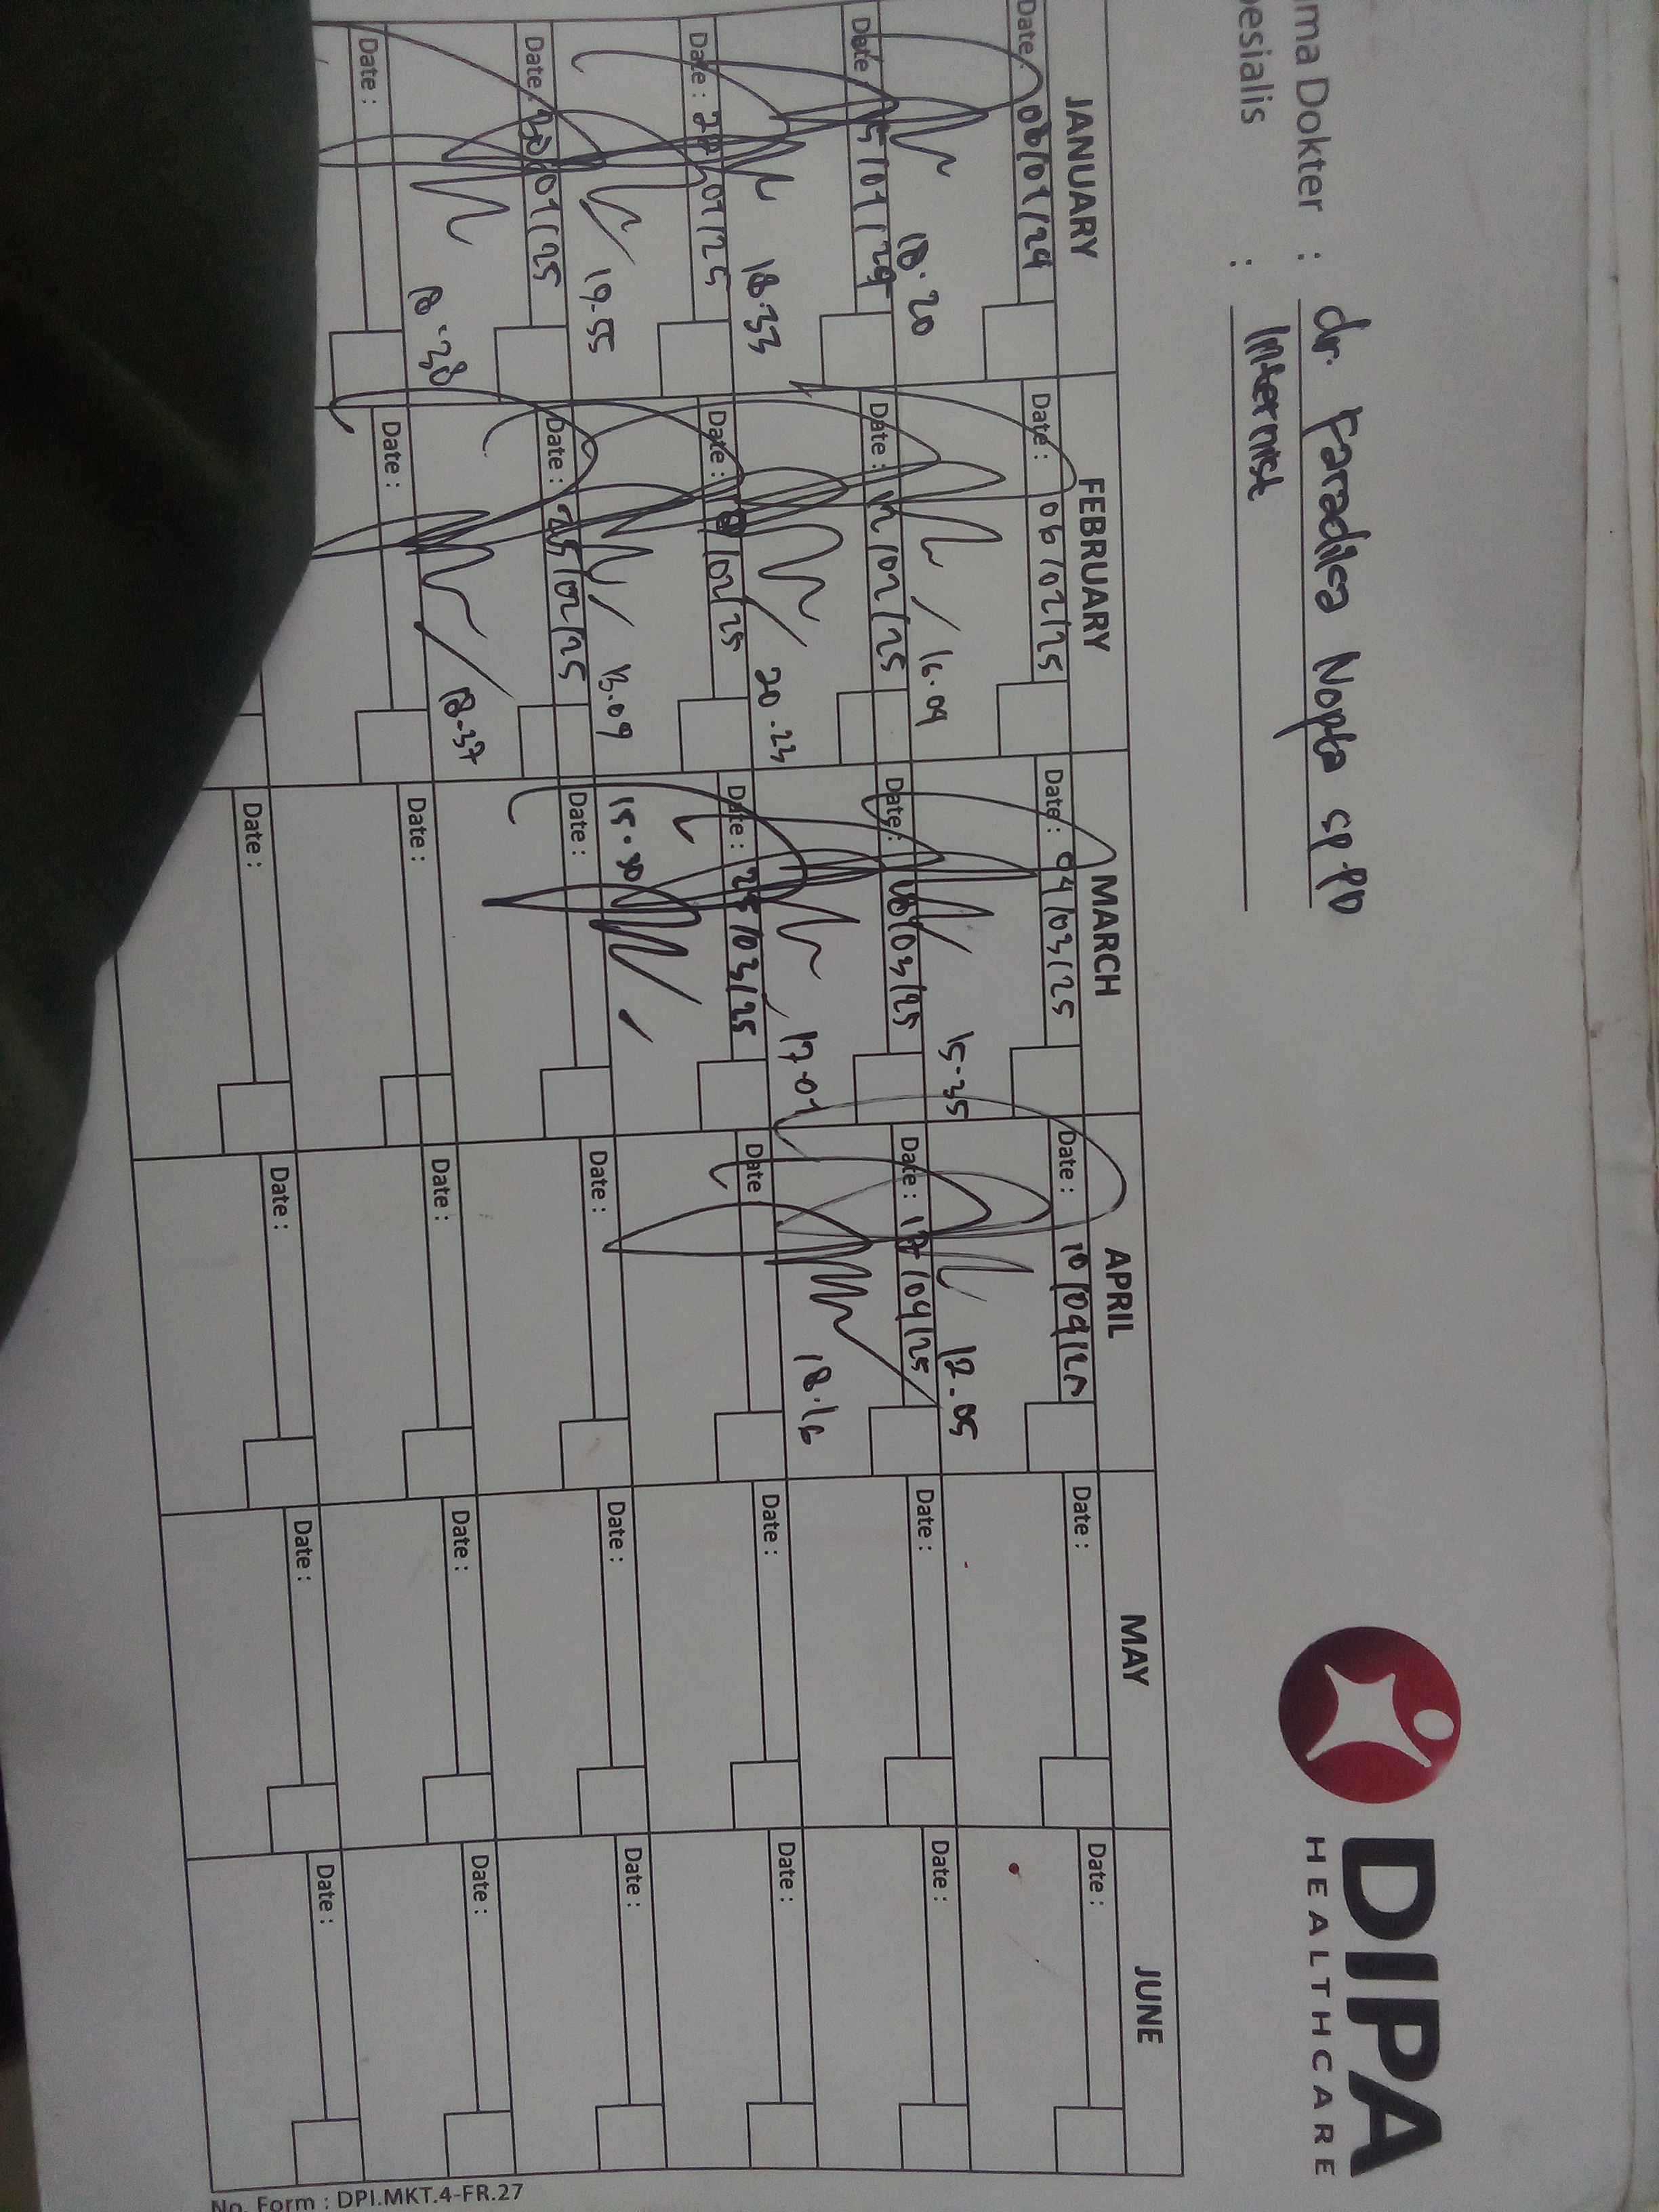 DIPA
HEALTHCARE
ma Dokter : dr. Paradisa Nopta SpPD
esialis : Internist
JANUARY FEBRUARY MARCH APRIL MAY JUNE
Date : 06/02/25 Date : 04/03/25 Date : Date : Date :
18.20 16.09 15.35 12.05
Date Date : 12/02/25 Date : /03/25 Date : 17/04/25 Date : Date :
18.33 20.23 17.01 18.16
Date : /01/25 Date : /02/25 Date : 25/03/25 Date Date : Date :
19.55 13.09 15.30
Date : /01/25 Date : 25/02/25 Date : Date : Date : Date :
18.38 18.37
Date : Date : Date : Date : Date : Date :
Date : Date : Date : Date :
No. Form : DPI.MKT.4-FR.27